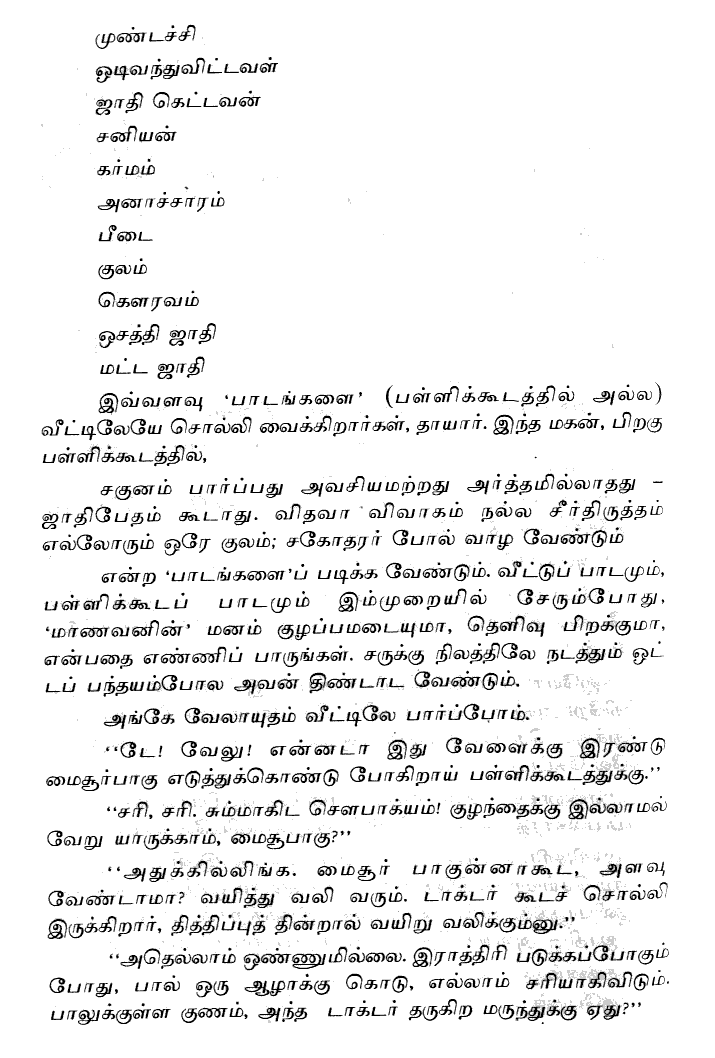 முண்டச்சி
ஒடிவந்துவிட்டவள்
ஜாதி கெட்டவன்
சனியன்
கர்மம்
அனாச்சாரம்
பீடை
குலம்
கௌரவம்
ஒசத்தி ஜாதி
மட்ட ஜாதி
இவ்வளவு ‘பாடங்களை’ (பள்ளிக்கூடத்தில் அல்ல)
வீட்டிலேயே சொல்லி வைக்கிறார்கள், தாயார். இந்த மகன், பிறகு
பள்ளிக்கூடத்தில்,
சகுனம் பார்ப்பது அவசியமற்றது அர்த்தமில்லாதது –
ஜாதிபேதம் கூடாது. விதவா விவாகம் நல்ல சீர்திருத்தம்
எல்லோரும் ஒரே குலம்; சகோதரர் போல் வாழ வேண்டும்
என்ற ‘பாடங்களை’ப் படிக்க வேண்டும். வீட்டுப் பாடமும்,
பள்ளிக்கூடப் பாடமும் இம்முறையில் சேரும்போது,
‘மாணவனின்’ மனம் குழப்பமடையுமா, தெளிவு பிறக்குமா,
என்பதை எண்ணிப் பாருங்கள். சருக்கு நிலத்திலே நடத்தும் ஒட்
டப் பந்தயம்போல அவன் திண்டாட வேண்டும்.
அங்கே வேலாயுதம் வீட்டிலே பார்ப்போம்.
‘‘டே! வேலு! என்னடா இது வேளைக்கு இரண்டு
மைசூர்பாகு எடுத்துக்கொண்டு போகிறாய் பள்ளிக்கூடத்துக்கு.’’
‘‘சரி, சரி. சும்மாகிட சௌபாக்யம்! குழந்தைக்கு இல்லாமல்
வேறு யாருக்காம், மைசூபாகு?’’
‘‘அதுக்கில்லிங்க. மைசூர் பாகுன்னாகூட, அளவு
வேண்டாமா? வயித்து வலி வரும். டாக்டர் கூடச் சொல்லி
இருக்கிறார், தித்திப்புத் தின்றால் வயிறு வலிக்கும்னு.’’
‘‘அதெல்லாம் ஒண்ணுமில்லை. இராத்திரி படுக்கப்போகும்
போது, பால் ஒரு ஆழாக்கு கொடு, எல்லாம் சரியாகிவிடும்.
பாலுக்குள்ள குணம், அந்த டாக்டர் தருகிற மருந்துக்கு ஏது?’’